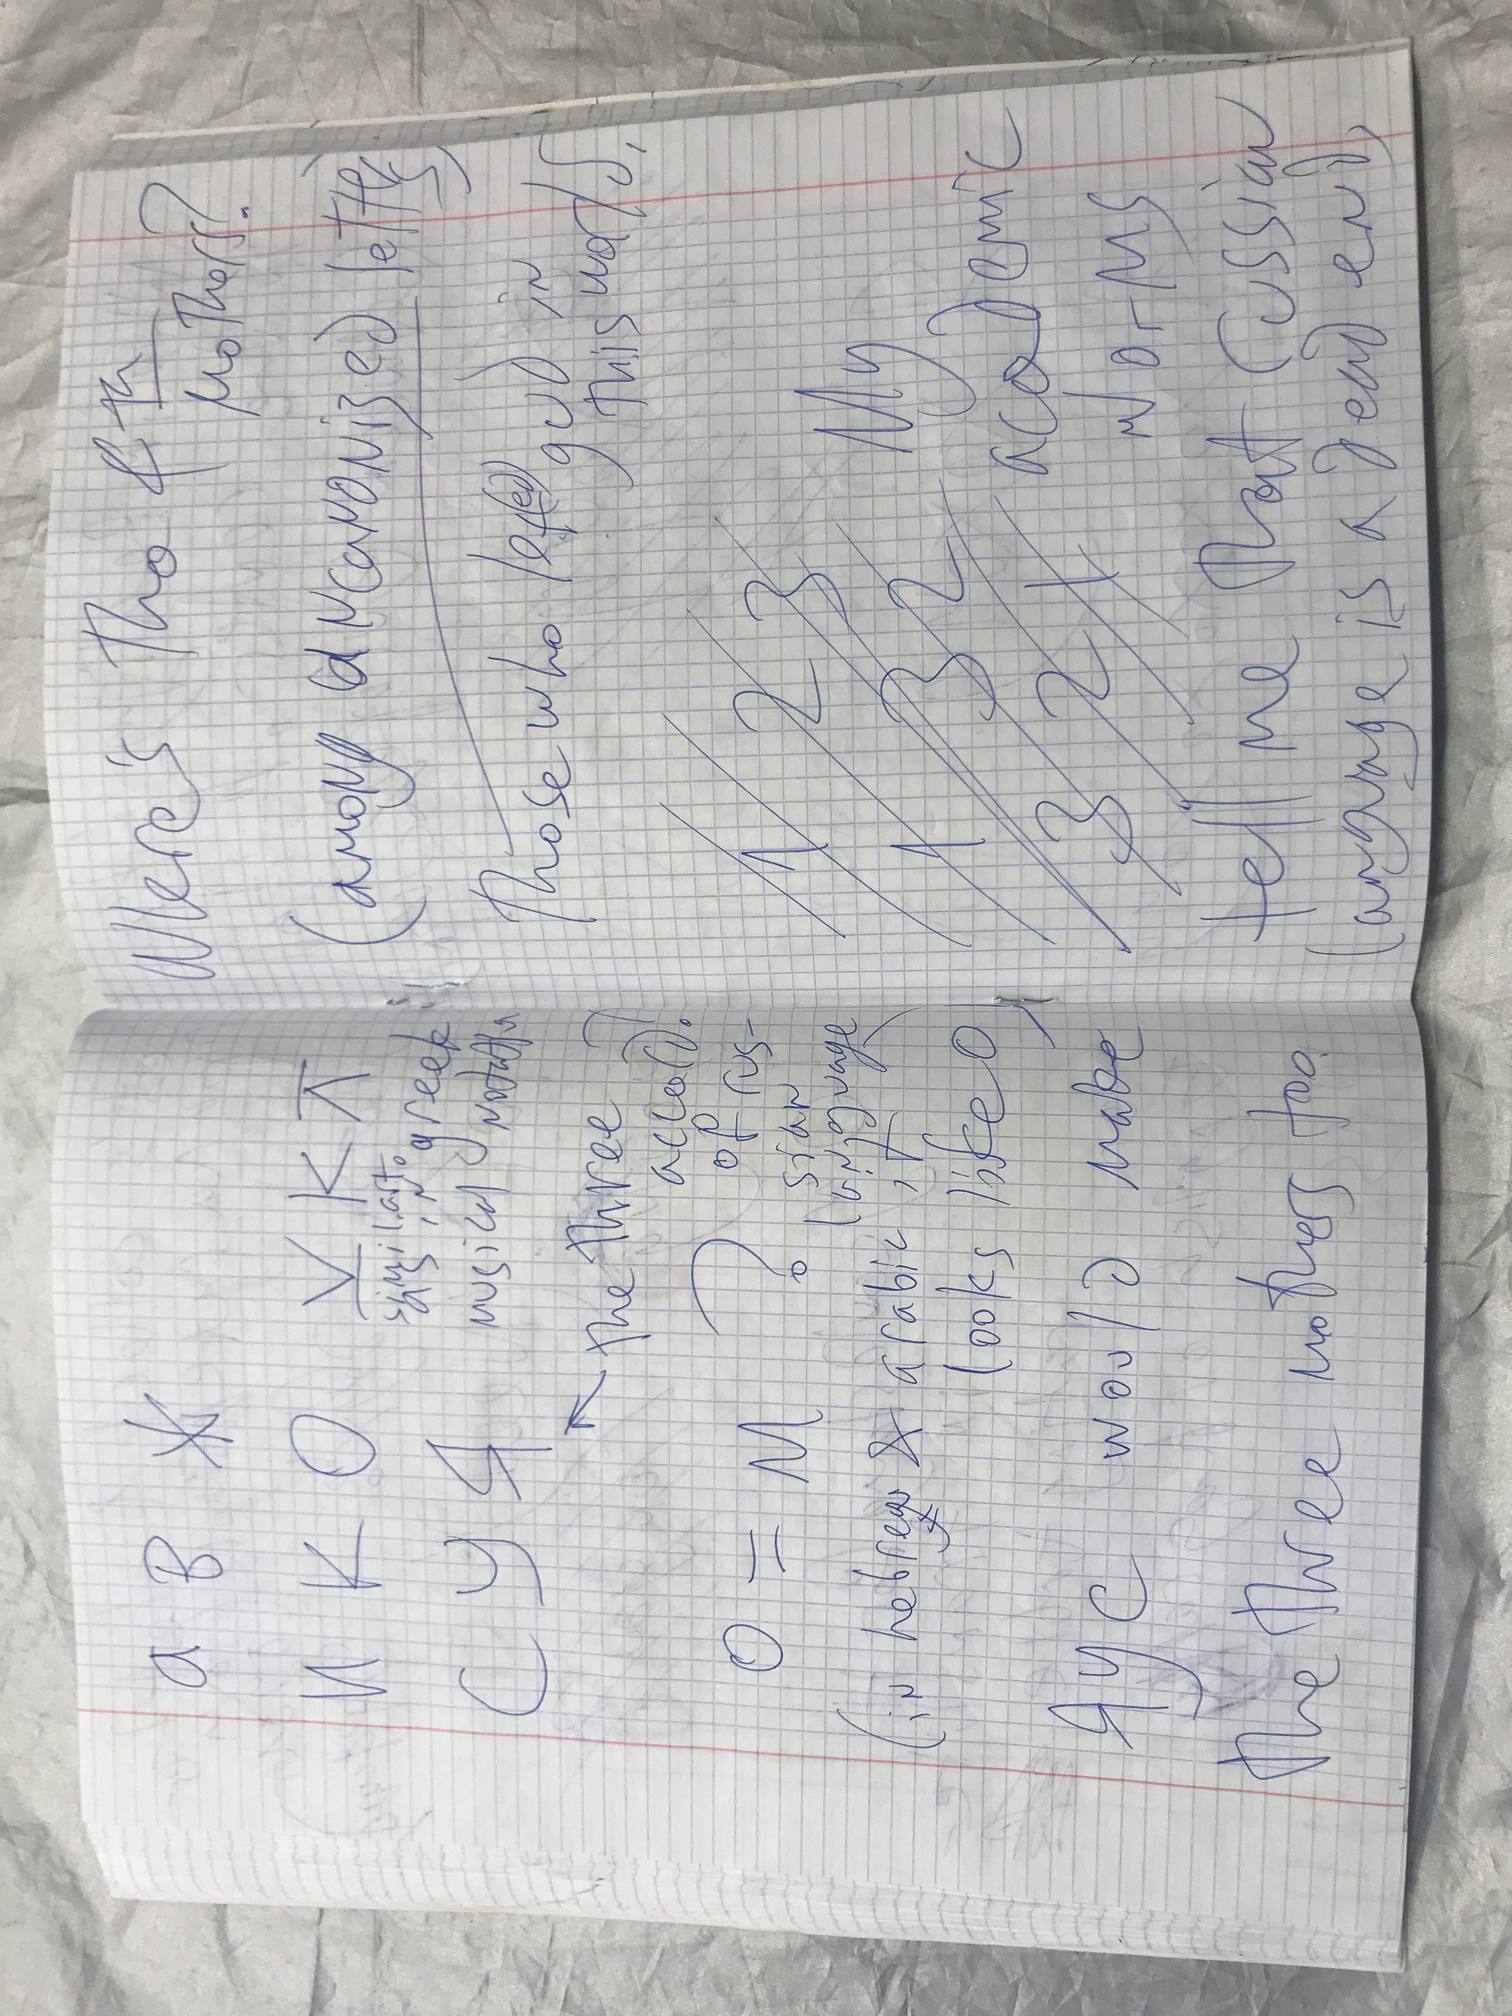 а в ж
и к о
V K T
similart.
as in greek
musical notatn
с у я
← the three
accord.
of rus-
sian
language
о = м ?
(in hebrew & arabic, it
looks like 0)
я у с would make
the three mothers too.
Where's the
mother?
(among uncanonized letters)
those who lef(ed) gud in
this world,
1 2 3
1 3 2
3 2 1
My
academic
norms
tell me that russian
language is a dead end)